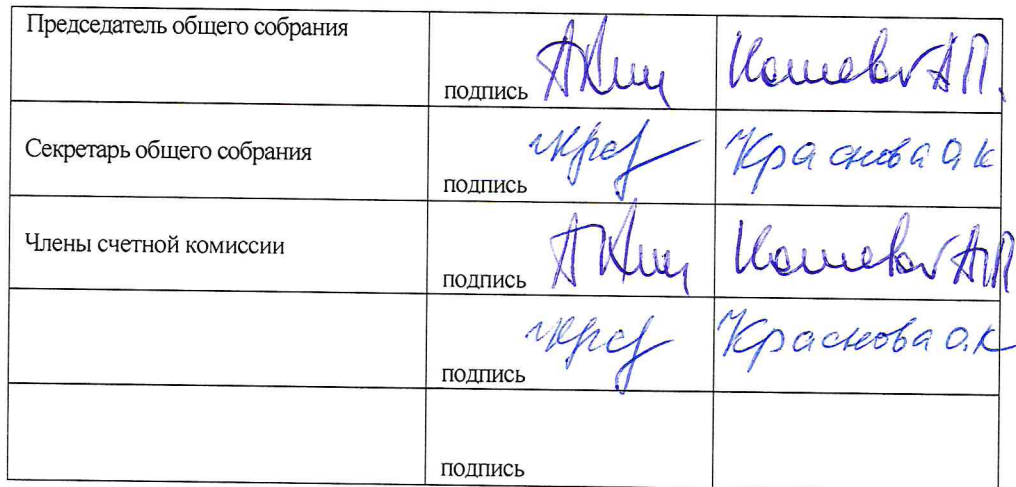 Председатель общего собрания
подпись Кошевой А.П.
Секретарь общего собрания
подпись Краснова О.К
Члены счетной комиссии
подпись Кошевой А.П
подпись Краснова О.К
подпись